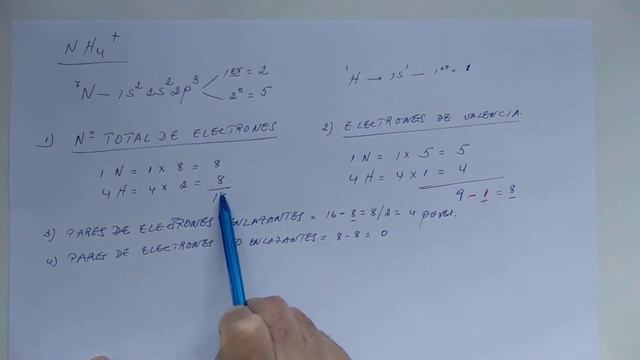 NH4+
7N - 1s2 2s2 2p3 1er = 2
2º = 5
1H → 1s1 - 1er = 1
1) Nº TOTAL DE ELECTRONES
1 N = 1 x 8 = 8
4 H = 4 x 2 = 8
2) ELECTRONES DE VALENCIA.
1 N = 1 x 5 = 5
4 H = 4 x 1 = 4
9 - 1 = 8
3) PARES DE ELECTRONES ENLAZANTES = 16 - 8 = 8/2 = 4 pares.
4) PARES DE ELECTRONES ENLAZANTES = 8 - 8 = 0